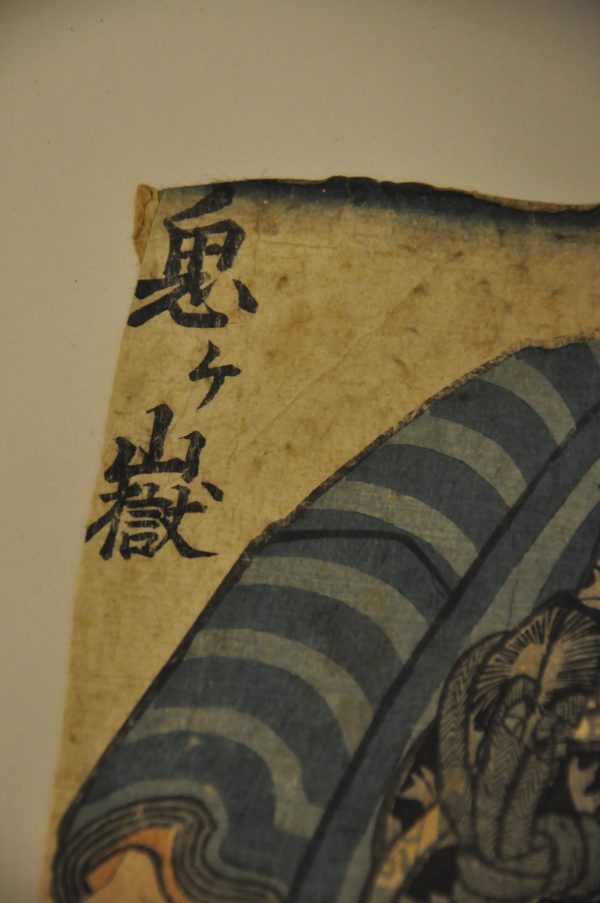 鬼ヶ嶽